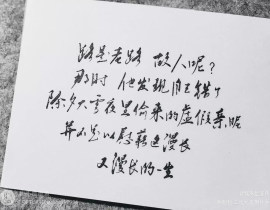 路是老路 故人呢？
那时 他发现自己错了
除夕大雪夜里偷来的虚假亲昵
并不足以慰藉这漫长
又漫长的一生